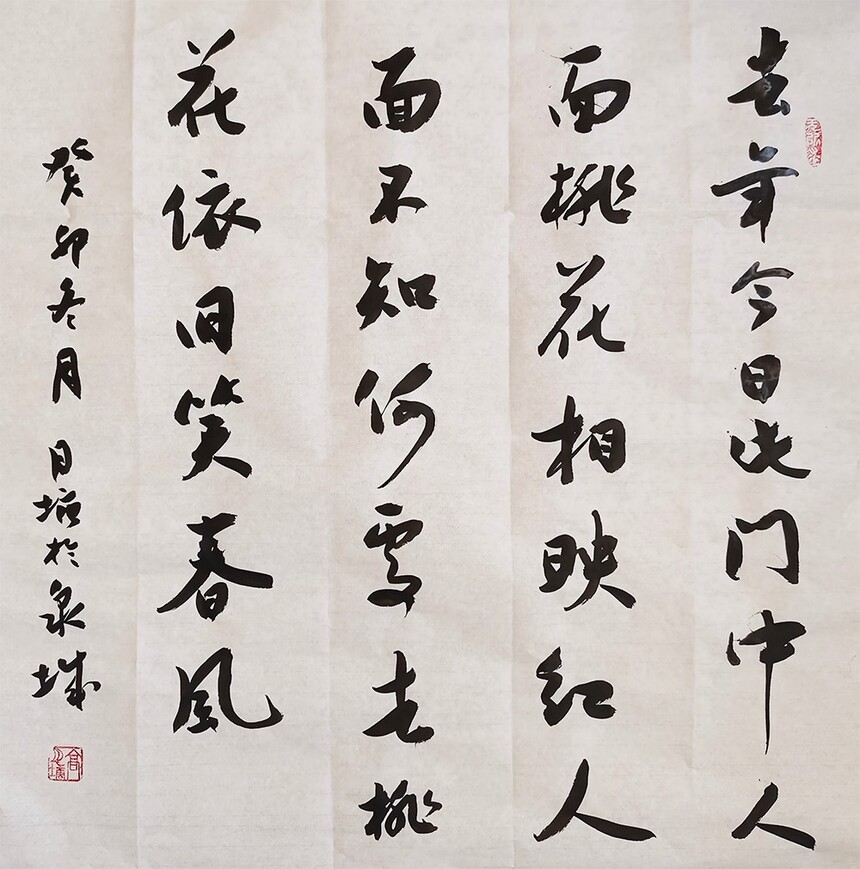 去年今日此门中人
面桃花相映红人
面不知何处去桃
花依旧笑春风
癸卯冬月 月垣于泉城